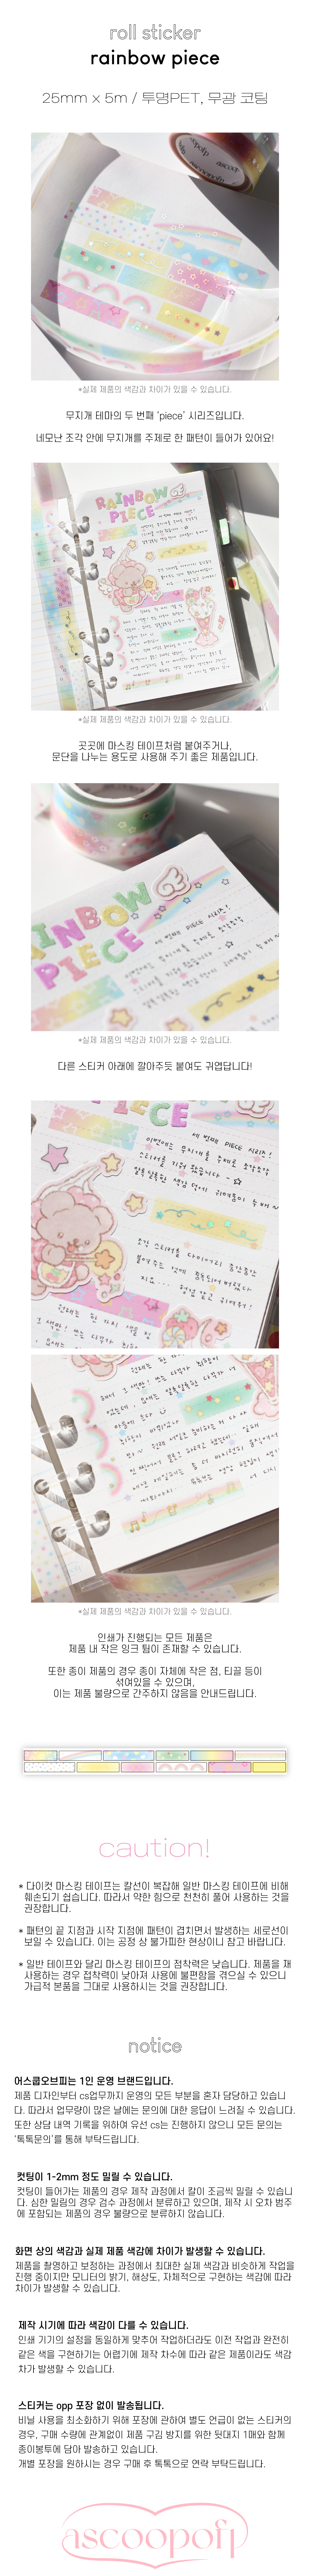 roll sticker
rainbow piece
25mm x 5m / 투명PET, 무광 코팅
ascoopofp
ascoop
*실제 제품의 색감과 차이가 있을 수 있습니다.
무지개 테마의 두 번째 'piece' 시리즈입니다.
네모난 조각 안에 무지개를 주제로 한 패턴이 들어가 있어요!
RAINBOW
PIECE
*실제 제품의 색감과 차이가 있을 수 있습니다.
곳곳에 마스킹 테이프처럼 붙여주거나,
문단을 나누는 용도로 사용해 주기 좋은 제품입니다.
INBOW
PIECE
*실제 제품의 색감과 차이가 있을 수 있습니다.
다른 스티커 아래에 깔아주듯 붙여도 귀엽답니다!
ECE
세 번째 PIECE 시리즈!
이번에는 무지개를 주제로
*실제 제품의 색감과 차이가 있을 수 있습니다.
인쇄가 진행되는 모든 제품은
제품 내 작은 잉크 튐이 존재할 수 있습니다.
또한 종이 제품의 경우 종이 자체에 작은 점, 티끌 등이
섞여있을 수 있으며,
이는 제품 불량으로 간주하지 않음을 안내드립니다.
caution!
* 다이컷 마스킹 테이프는 칼선이 복잡해 일반 마스킹 테이프에 비해
훼손되기 쉽습니다. 따라서 약한 힘으로 천천히 풀어 사용하는 것을
권장합니다.
* 패턴의 끝 지점과 시작 지점에 패턴이 겹치면서 발생하는 세로선이
보일 수 있습니다. 이는 공정 상 불가피한 현상이니 참고 바랍니다.
* 일반 테이프와 달리 마스킹 테이프의 점착력은 낮습니다. 제품을 재
사용하는 경우 접착력이 낮아져 사용에 불편함을 겪으실 수 있으니
가급적 본품을 그대로 사용하시는 것을 권장합니다.
notice
어스쿱오브피는 1인 운영 브랜드입니다.
제품 디자인부터 cs업무까지 운영의 모든 부분을 혼자 담당하고 있습니
다. 따라서 업무량이 많은 날에는 문의에 대한 응답이 느려질 수 있습니다.
또한 상담 내역 기록을 위하여 유선 cs는 진행하지 않으니 모든 문의는
'톡톡문의'를 통해 부탁드립니다.
컷팅이 1-2mm 정도 밀릴 수 있습니다.
컷팅이 들어가는 제품의 경우 제작 과정에서 칼이 조금씩 밀릴 수 있습니
다. 심한 밀림의 경우 검수 과정에서 분류하고 있으며, 제작 시 오차 범주
에 포함되는 제품의 경우 불량으로 분류하지 않습니다.
화면 상의 색감과 실제 제품 색감에 차이가 발생할 수 있습니다.
제품을 촬영하고 보정하는 과정에서 최대한 실제 색감과 비슷하게 작업을
진행 중이지만 모니터의 밝기, 해상도, 자체적으로 구현하는 색감에 따라
차이가 발생할 수 있습니다.
제작 시기에 따라 색감이 다를 수 있습니다.
인쇄 기기의 설정을 동일하게 맞추어 작업하더라도 이전 작업과 완전히
같은 색을 구현하기는 어렵기에 제작 차수에 따라 같은 제품이라도 색감
차가 발생할 수 있습니다.
스티커는 opp 포장 없이 발송됩니다.
비닐 사용을 최소화하기 위해 포장에 관하여 별도 언급이 없는 스티커의
경우, 구매 수량에 관계없이 제품 구김 방지를 위한 뒷대지 1매와 함께
종이봉투에 담아 발송하고 있습니다.
개별 포장을 원하시는 경우 구매 후 톡톡으로 연락 부탁드립니다.
ascoopofp